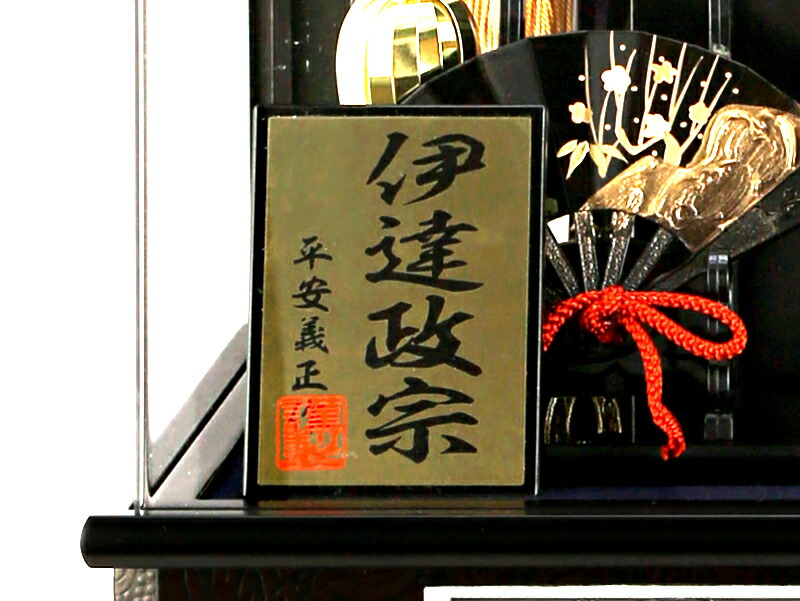 伊達政宗
平安義正